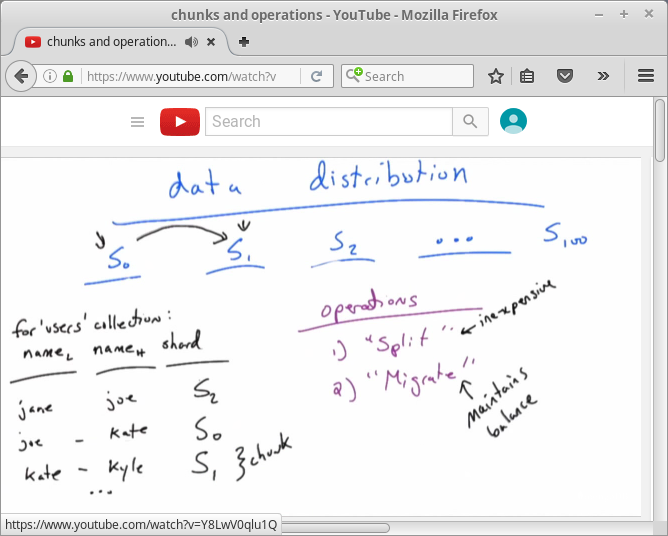 chunks and operations - YouTube - Mozilla Firefox
chunks and operation...
https://www.youtube.com/watch?v
Search
Search
data distribution
S0 S1 S2 ... S100
for 'users' collection:
nameL nameH shard
jane joe S2
joe - kate S0
kate - kyle S1 } chunk
...
operations
1) "Split" ← inexpensive
2) "Migrate"
Maintains
balance
https://www.youtube.com/watch?v=Y8LwV0qlu1Q